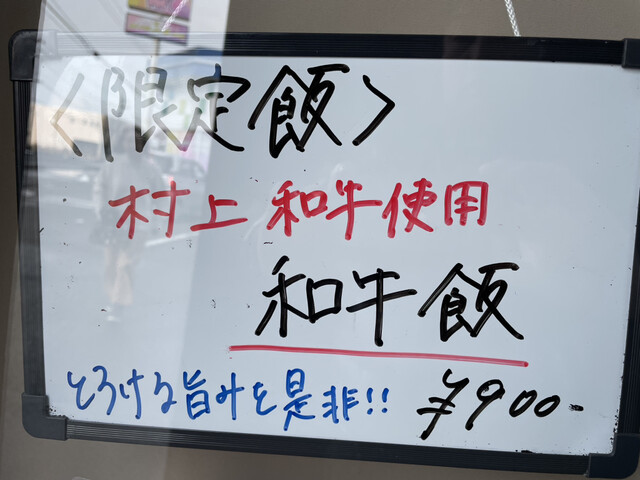 〈限定飯〉
村上 和牛使用
和牛飯
とろける旨みを是非!!
¥900-